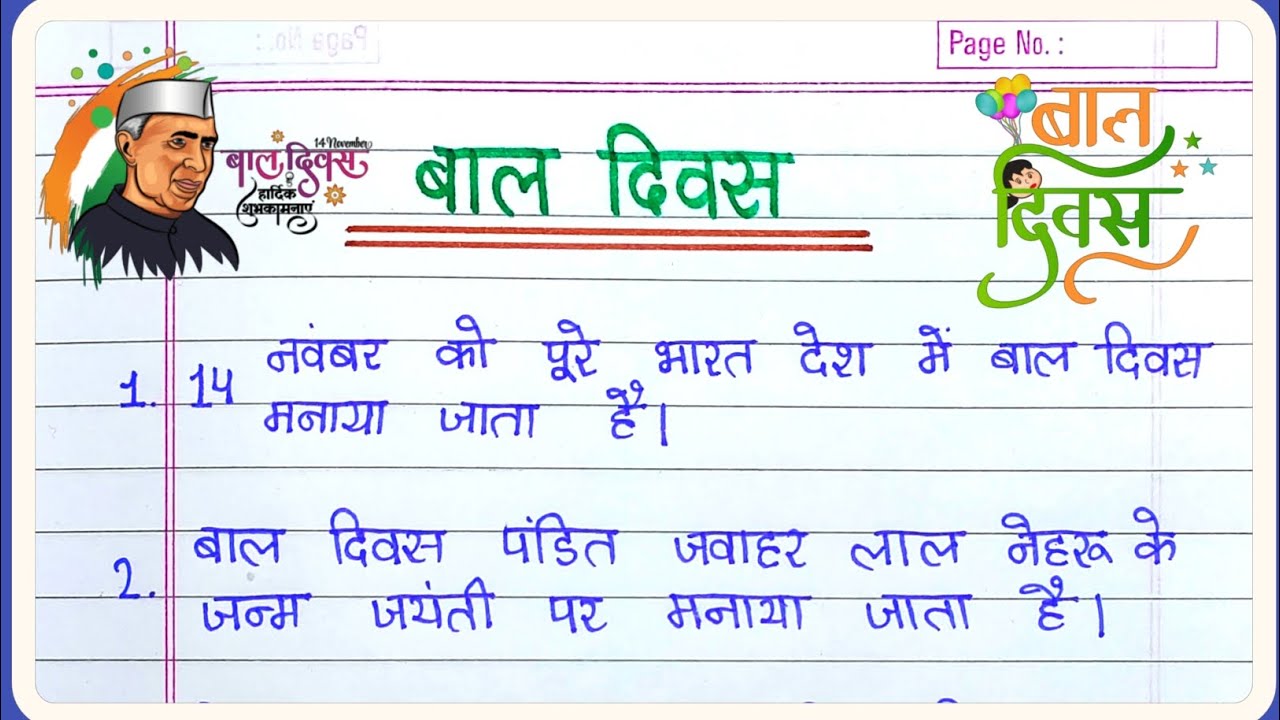 Page No. :
14 November
बाल दिवस
की
हार्दिक
शुभकामनाएं
बाल दिवस
बाल
दिवस
1. 14 नवंबर को पूरे भारत देश में बाल दिवस
मनाया जाता है।
2. बाल दिवस पंडित जवाहर लाल नेहरू के
जन्म जयंती पर मनाया जाता है।